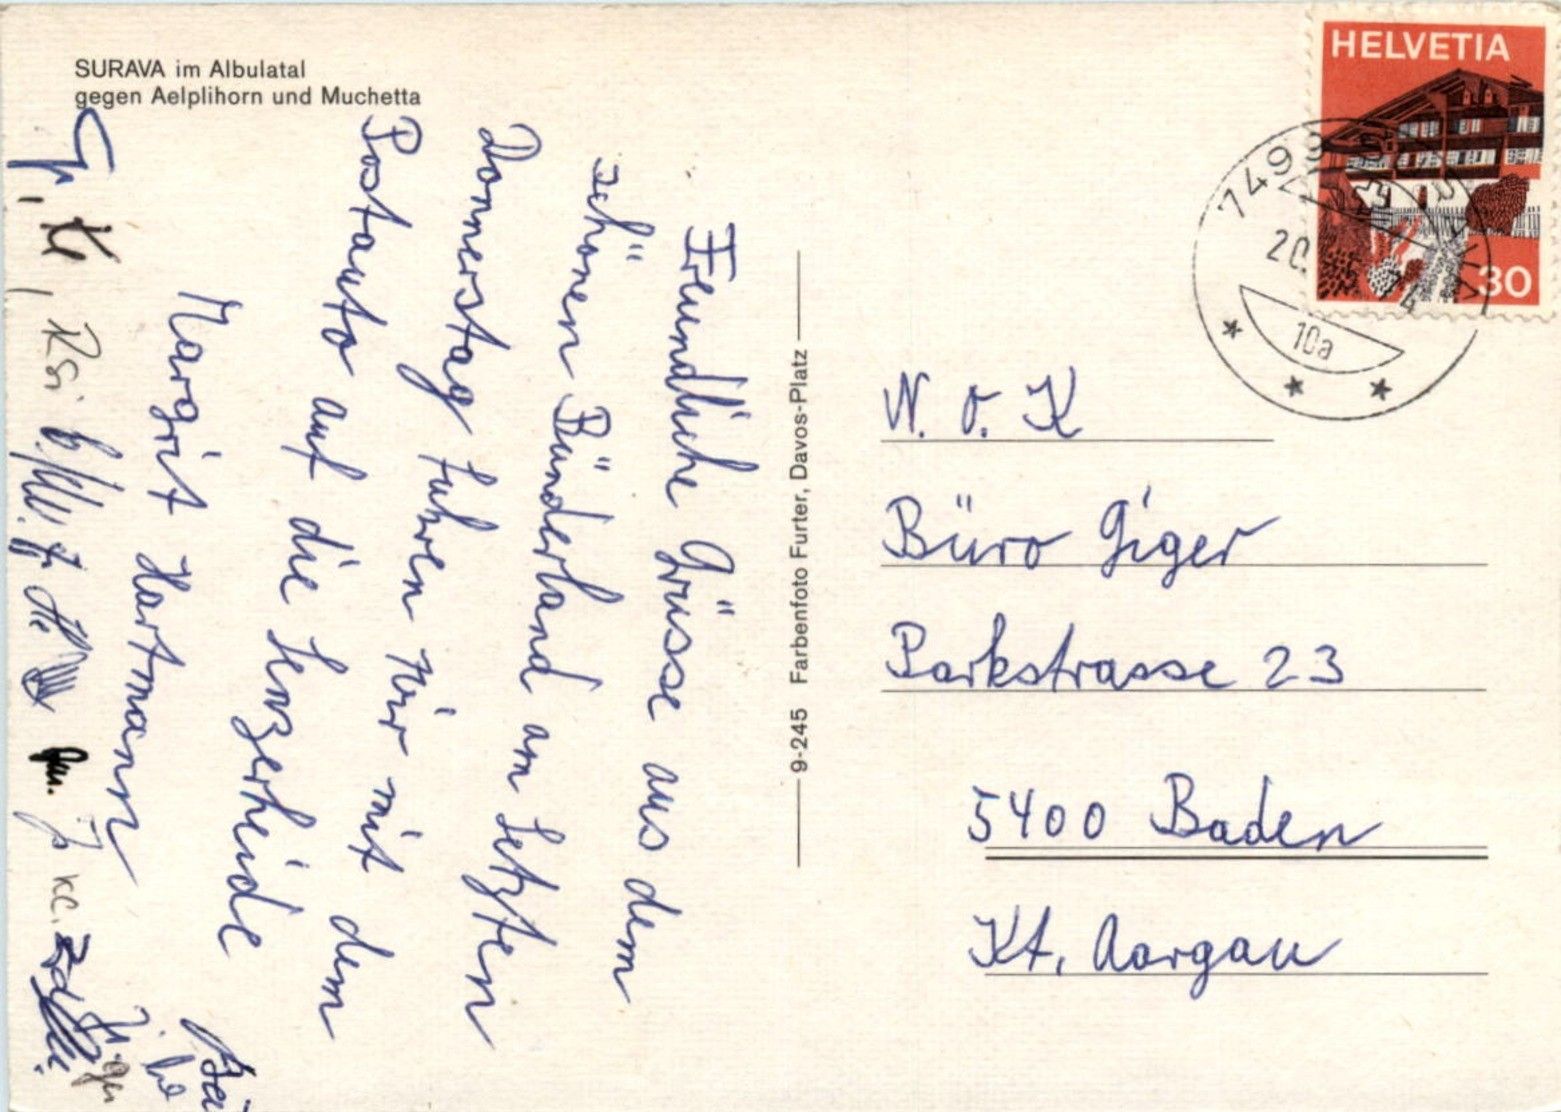 SURAVA im Albulatal
gegen Aelplihorn und Muchetta
Freundliche Grüsse aus dem
schönen Bünderland am Letzten
Donnerstag fuhren wir mit dem
Postauto auf die Lenzerheide
Margrit Hartmann
9-245 Farbenfoto Furter, Davos-Platz
HELVETIA
30
7499
20.
74
10a
N. O. K
Büro Giger
Parkstrasse 23
5400 Baden
Kt. Aargau